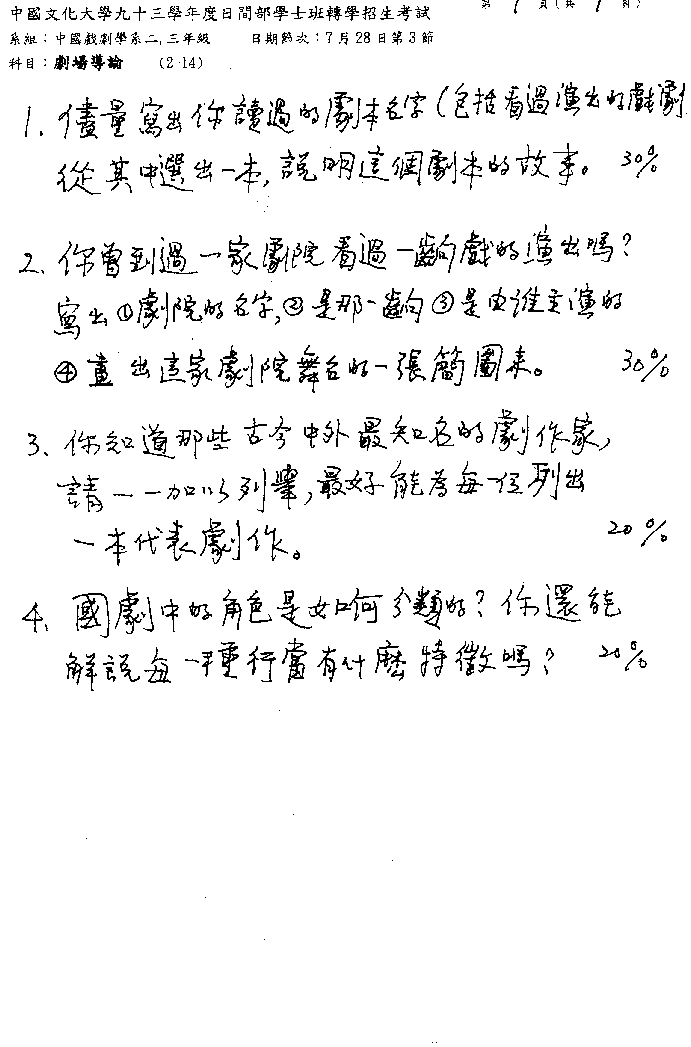 中國文化大學九十三學年度日間部學士班轉學招生考試 第 1 頁(共 1 頁)
系組:中國戲劇學系二,三年級 日期節次:7月28日第3節
科目:劇場導論 (2-14)
1. 儘量寫出你讀過的劇本名字(包括看過演出的戲劇
從其中選出一本,說明這個劇本的故事。 30%
2. 你曾到過一家劇院看過一齣戲的演出嗎?
寫出①劇院的名字,②是那一齣③是由誰主演的
④畫出這家劇院舞台的一張簡圖來。 30%
3. 你知道那些古今中外最知名的劇作家,
請一一加以列舉,最好能為每一位列出
一本代表劇作。 20%
4. 國劇中的角色是如何分類的?你還能
解說每一種行當有什麼特徵嗎? 20%